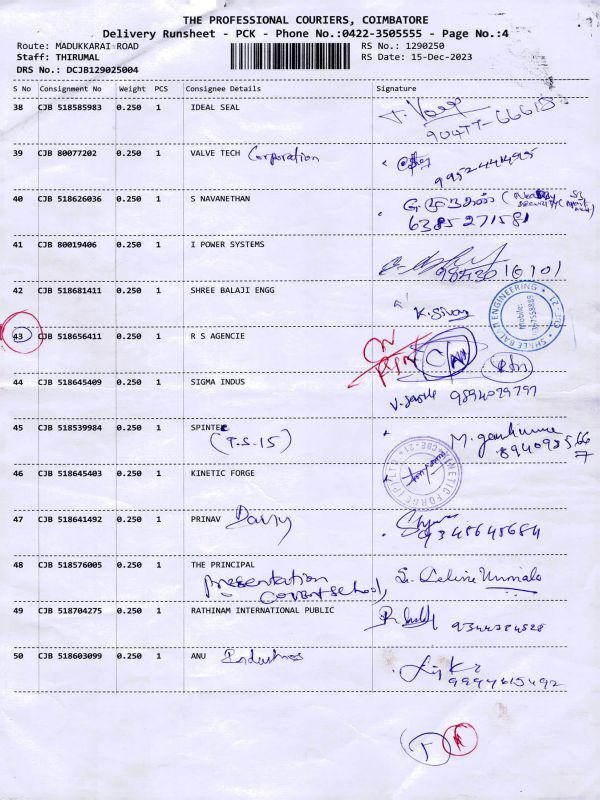 THE PROFESSIONAL COURIERS, COIMBATORE
Delivery Runsheet - PCK - Phone No.:0422-3505555 - Page No.:4
Route: MADUKKARAI ROAD RS No.: 1290250
Staff: THIRUMAL RS Date: 15-Dec-2023
DRS No.: DCJB129025004
S No Consignment No Weight PCS Consignee Details Signature
38 CJB 518585983 0.250 1 IDEAL SEAL
39 CJB 80077202 0.250 1 VALVE TECH Corporation
40 CJB 518626036 0.250 1 S NAVANETHAN
6385271581
41 CJB 80019406 0.250 1 I POWER SYSTEMS
42 CJB 518681411 0.250 1 SHREE BALAJI ENGG
K. Sivaq
43 CJB 518656411 0.250 1 R S AGENCIE
44 CJB 518645409 0.250 1 SIGMA INDUS
9894029797
45 CJB 518539984 0.250 1 SPINTEC
(T.S-15)
46 CJB 518645403 0.250 1 KINETIC FORGE
47 CJB 518641492 0.250 1 PRINAV Dairy
9345645684
48 CJB 518576005 0.250 1 THE PRINCIPAL
Presentation Convent School, Sr. Celine Nirmala
49 CJB 518704275 0.250 1 RATHINAM INTERNATIONAL PUBLIC
9344384528
50 CJB 518603099 0.250 1 ANU Industries
9994615492